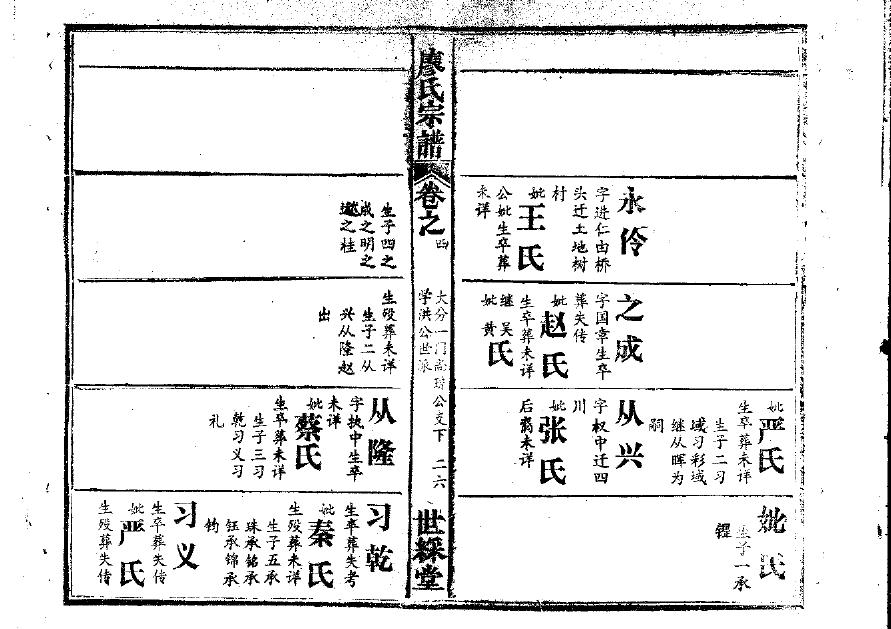 永伶
字进仁由桥
头迁土地树
村
妣王氏
公妣生卒葬
未详
之成
字国章生卒
葬失传
妣赵氏
生卒葬未详
继吴
妣黄氏
妣严氏
生卒葬未详
生子二习
域习彩域
继从晖为
嗣
从兴
字权中迁四
川
妣张氏
后裔未详
妣氏
生子一承
锃
廖氏宗譜
卷之四
大分一门
学洪公世派
公支下 二六
世綵堂
生子四之
成之明之
之桂
生殁葬未详
生子二从
兴从隆赵
出
从隆
字执中生卒
未详
妣蔡氏
生卒葬未详
生子三习
乾习义习
礼
习乾
生卒葬失考
妣秦氏
生殁葬未详
生子五承
珠承铭承
钰承锦承
钧
习义
生卒葬失传
妣严氏
生殁葬失传